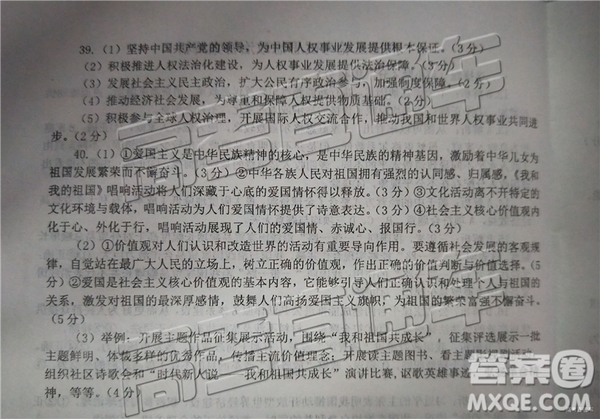 39.（1）坚持中国共产党的领导，为中国人权事业发展提供根本保证。（3分）
（2）积极推进人权法治化建设，为人权事业发展提供法治保障。（3分）
（3）发展社会主义民主政治，扩大公民有序政治参与，加强制度保障。（2分）
（4）推动经济社会发展，为尊重和保障人权提供物质基础。（2分）
（5）积极参与全球人权治理，开展国际人权交流合作，推动我国和世界人权事业共同进
步。（2分）
40.（1）①爱国主义是中华民族精神的核心，是中华民族的精神基因，激励着中华儿女为
祖国发展繁荣而不懈奋斗。（3分）②中华各族人民对祖国拥有强烈的认同感、归属感，《我和
我的祖国》唱响活动将人们深藏于心底的爱国情怀得以释放。（3分）③文化活动离不开特定的
文化环境与载体，唱响活动为人们爱国情怀提供了诗意表达。（3分）④社会主义核心价值观内
化于心、外化于行，唱响活动展现了人们的爱国情、赤诚心、报国行。（3分）
（2）①价值观对人们认识和改造世界的活动有重要导向作用。要遵循社会发展的客观规
律，自觉站在最广大人民的立场上，树立正确的价值观，作出正确的价值判断与价值选择。（5
分）②爱国是社会主义核心价值观的基本内容，它能够引导人们正确认识和处理个人与祖国的
关系，激发对祖国的最深厚感情，鼓舞人们高扬爱国主义旗帜，为祖国的繁荣富强不懈奋斗。
（5分）
（3）举例：开展主题作品征集展示活动，围绕“我和祖国共成长”，征集评选展示一批
主题鲜明、体裁多样的优秀作品，传播主流价值理念；开展读主题图书、看主题
组织社区诗歌会和“时代新人说——我和祖国共成长”演讲比赛，讴歌英雄事迹
神，等等。（4分）
高考直通车
高考直通车
答案圈
MXQE.COM